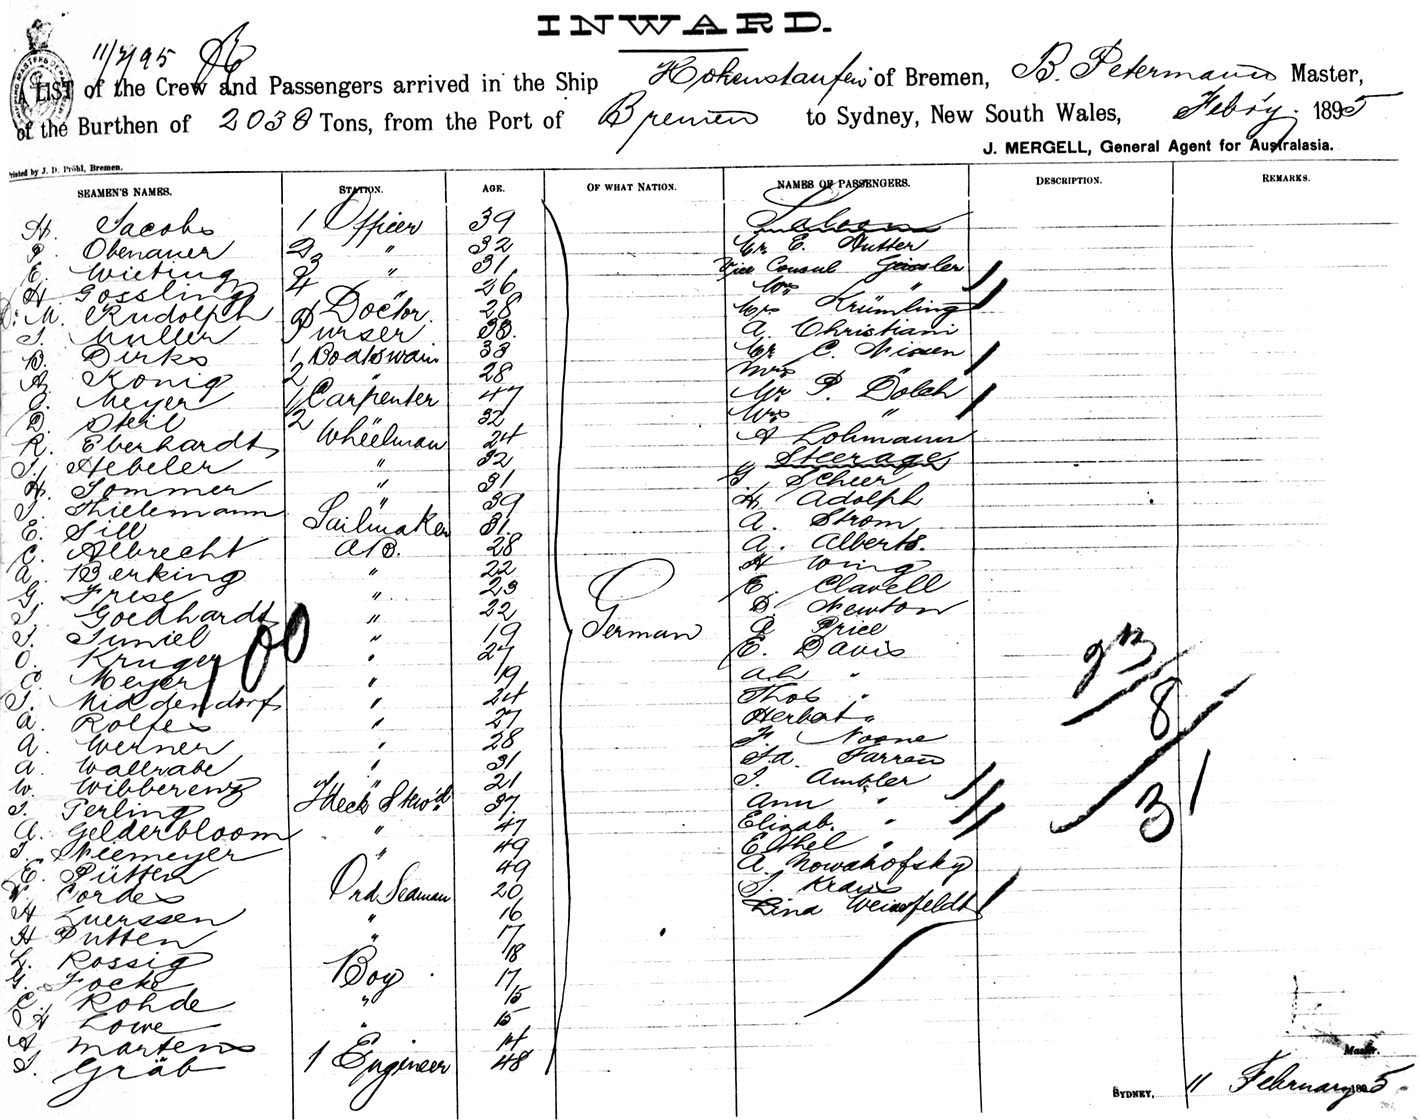 INWARD.
11/2/95
A LIST of the Crew and Passengers arrived in the Ship Hohenstaufen of Bremen, B. Petermann Master,
of the Burthen of 2038 Tons, from the Port of Bremen to Sydney, New South Wales, Febry. 1895
J. MERGELL, General Agent for Australasia.
Printed by J. D. Pröhl, Bremen.
SEAMEN'S NAMES. STATION. AGE. OF WHAT NATION. NAMES OF PASSENGERS. DESCRIPTION. REMARKS.
H. Jacobs 1 Officer 39 Saloon
Obenauer 2 " 32 Mr E. Hutter
E. Wieting 3 " 31 Vice Consul Geissler
H. Gossling 4 " 26 Mrs "
Dr. M. Rudolph Doctor. 28 Mrs Krümling
J. Muller Purser 33. A. Christiani
B. Dirks 1 Boatswain 33 Mr C. Nissen
A. Konig 2 " 28 Mrs "
Meyer 1 Carpenter 47 Mr P. Dölch
D. Steil 2 " 32 Mrs "
R. Eberhardt Wheelman 24 A Lohmann
J. Hebeler " 32 Steerage
H. Sommer " 31 G. Scheer
J. Thielemann " 39 H. Adolph
E. Sill Sailmaker 31. A. Strom
C. Albrecht A.B. 28 A. Alberts.
A. Berking " 22 H Wing
G. Frese " 23 E. Clavell
J. Goedhardt " 22 D. Newton
J. Juniel " 19 A Price
O. Kruger " 27 E. Davis
C. Meyer " 19 Ah "
J. Middendorf " 24 Thos "
A. Rolfes " 27 Herbert "
A. Werner " 28 F Noone
A. Wallrabe " 31 Farren
W. Wibberenz " 21 J. Ambler
J. Terling Stew'd 37 Ann "
A. Gelderbloom " 47 Elizab. "
J. Niemeyer " 49 Ethel "
E. Pütten 49 A. Nowakofsky
Cordes Ord Seaman 20 J. Kraus
H Luerssen " 16 Lina Weissfeldt
H Putten " 17
L. Rossig 18
G. Focke Boy 17
C. Rohde " 15
H Lowe " 15
A Martens 14
J. Gräb 1 Engineer 48
German
100
23
8
31
Master.
SYDNEY, 11 February 1895.